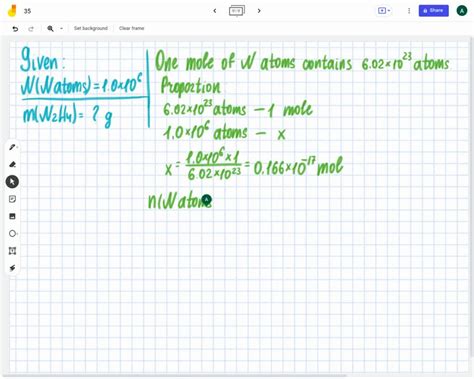 35
Share
A
Set background
Clear frame
Given:
N(N atoms)=1.0×10⁶
m(N₂H₄)= ? g
One mole of N atoms contains 6.02×10²³ atoms
Proportion:
6.02×10²³ atoms – 1 mole
1.0×10⁶ atoms – x
x = 1.0×10⁶ × 1 / 6.02×10²³ = 0.166×10⁻¹⁷ mol
n(N atoms
A